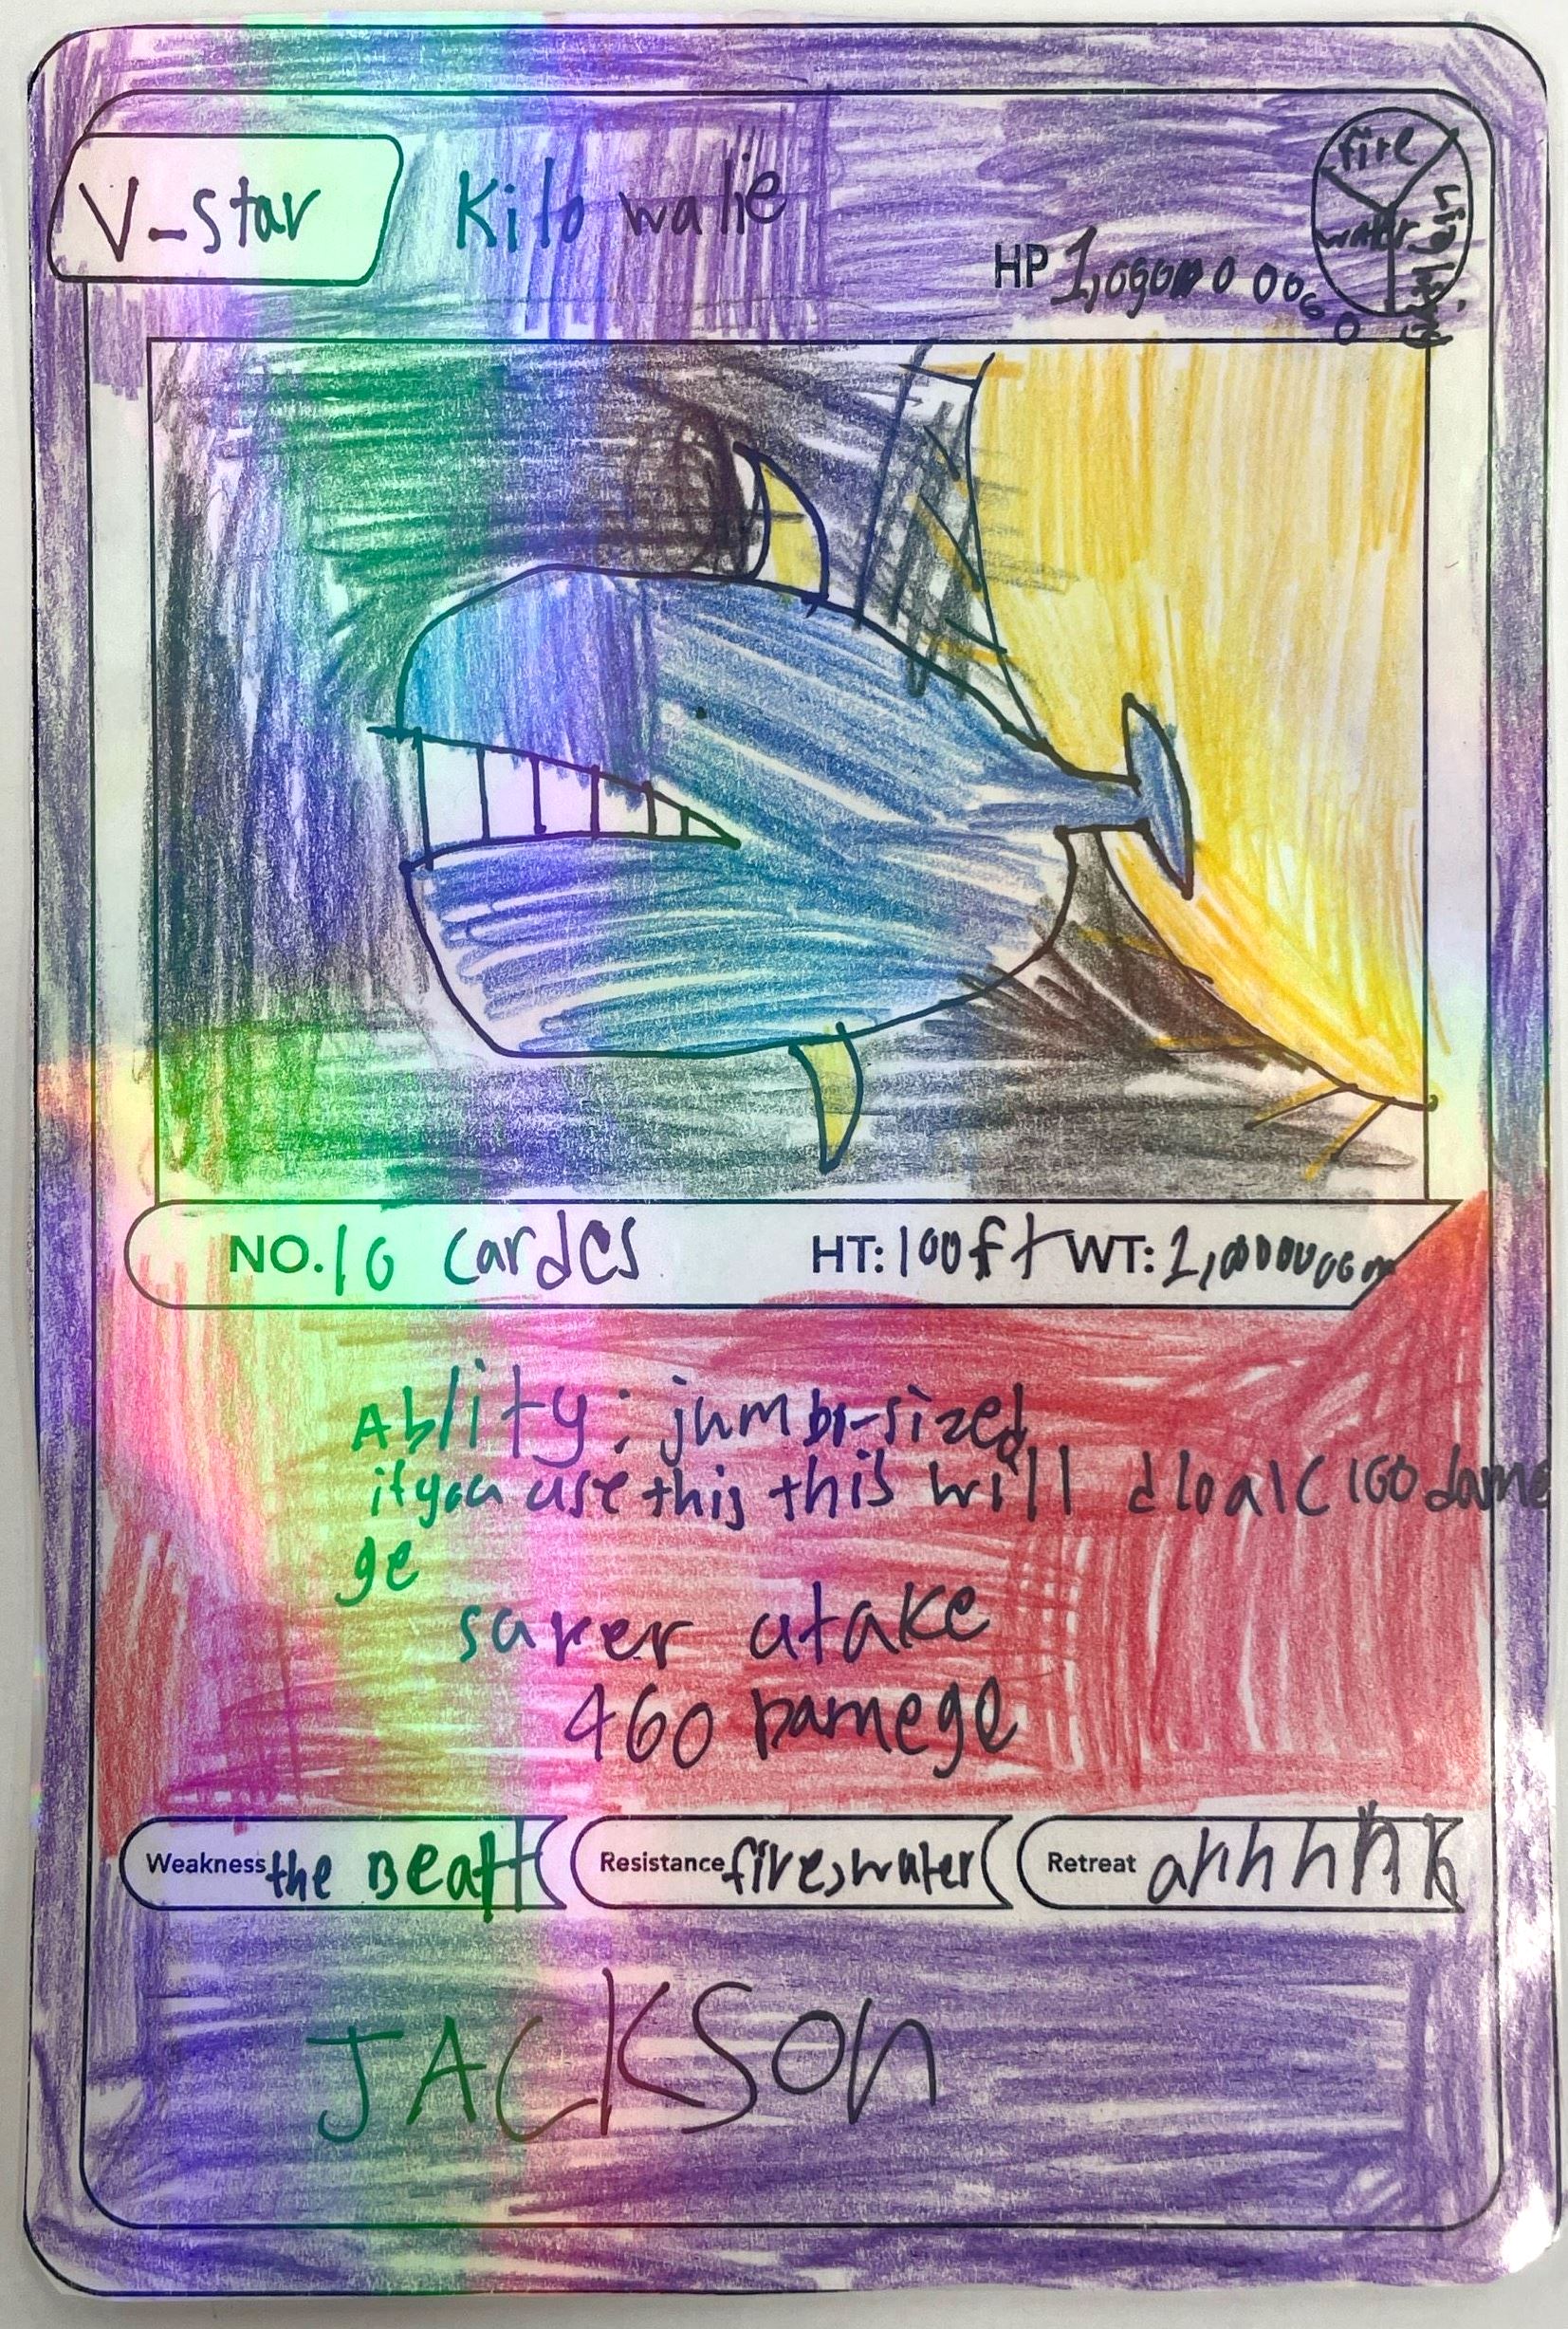 V-star Kilo walie
fire
water
HP 1,
NO. 10 cardes HT: 100ft WT: 1,
Ablity: jumbo-sized
if you use this this will 100 dame
ge
saker atake
460 Damege
Weakness the Beatt Resistance fire,water Retreat ahhhhh
JACKSon